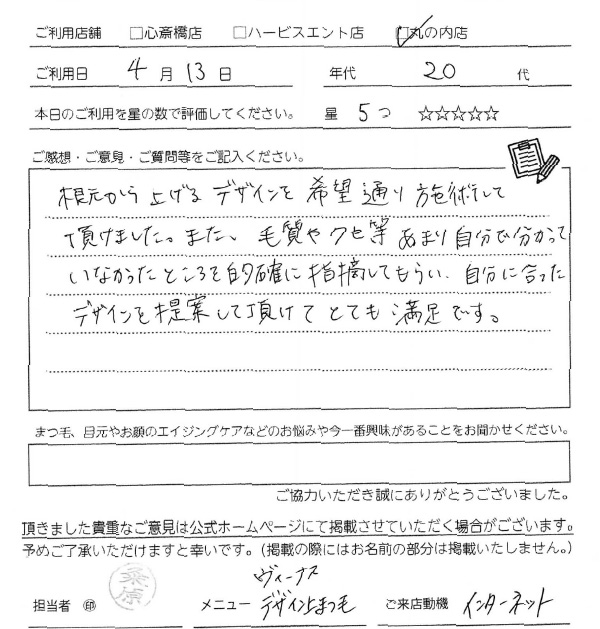 ご利用店舗 □心斎橋店 □ハービスエント店 ☑丸の内店
ご利用日 4月13日 年代 20代
本日のご利用を星の数で評価してください。 星 5つ ☆☆☆☆☆
ご感想・ご意見・ご質問等をご記入ください。
根元から上げるデザインを希望通り施術して
頂けました。また、毛質やクセ等あまり自分で分かって
いなかったところを的確に指摘してもらい、自分に合った
デザインを提案して頂けてとても満足です。
まつ毛、目元やお顔のエイジングケアなどのお悩みや今一番興味があることをお聞かせください。
ご協力いただき誠にありがとうございました。
頂きました貴重なご意見は公式ホームページにて掲載させていただく場合がございます。
予めご了承いただけますと幸いです。（掲載の際にはお名前の部分は掲載いたしません。）
担当者 ㊞ 桑原 メニュー ヴィーナス デザイン上まつ毛 ご来店動機 インターネット